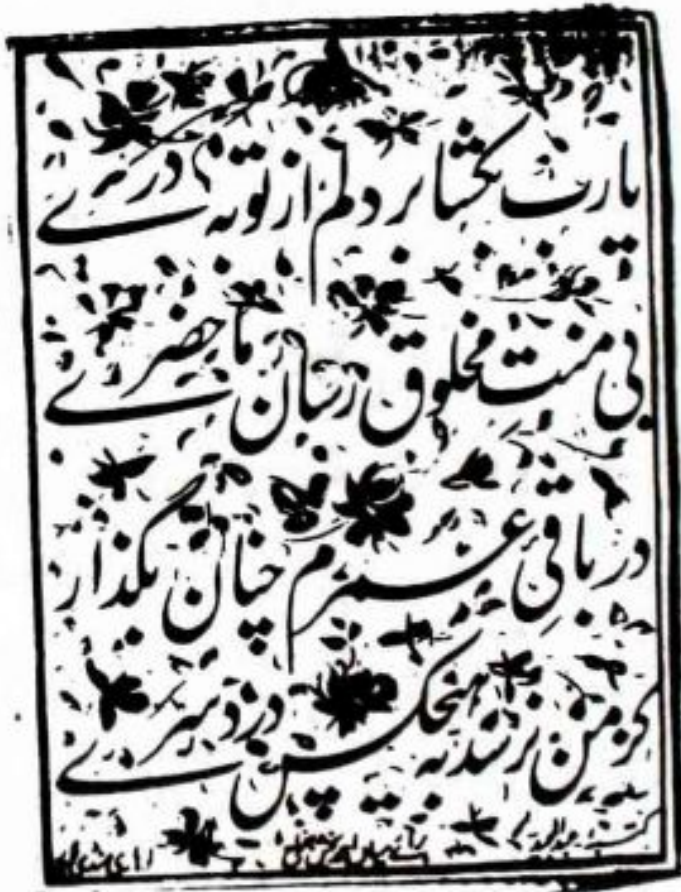 یارب بگشا بر دلم از توبه دری
بی منت مخلوق رسان ما حضری
در باقی عمرم چنان بگذار
کز من نرسد به هیچکس درد سری